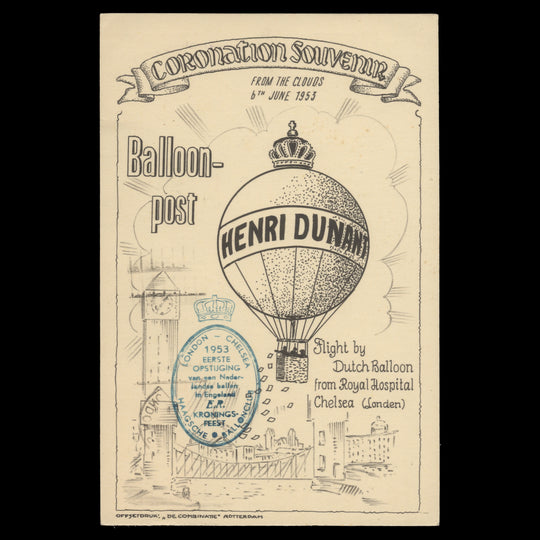 CORONATION SOUVENIR
FROM THE CLOUDS
6TH JUNE 1953
Balloon-
post
HENRI DUNANT
Flight by
Dutch Balloon
from Royal Hospital
Chelsea (Londen)
LONDON - CHELSEA
1953
EERSTE
OPSTIJGING
van een Neder-
landse ballon
in Engeland
E.R.
KRONINGS-
FEEST
HAAGSCHE BALLONCLUB
OFFSETDRUK: „DE COMBINATIE" ROTTERDAM